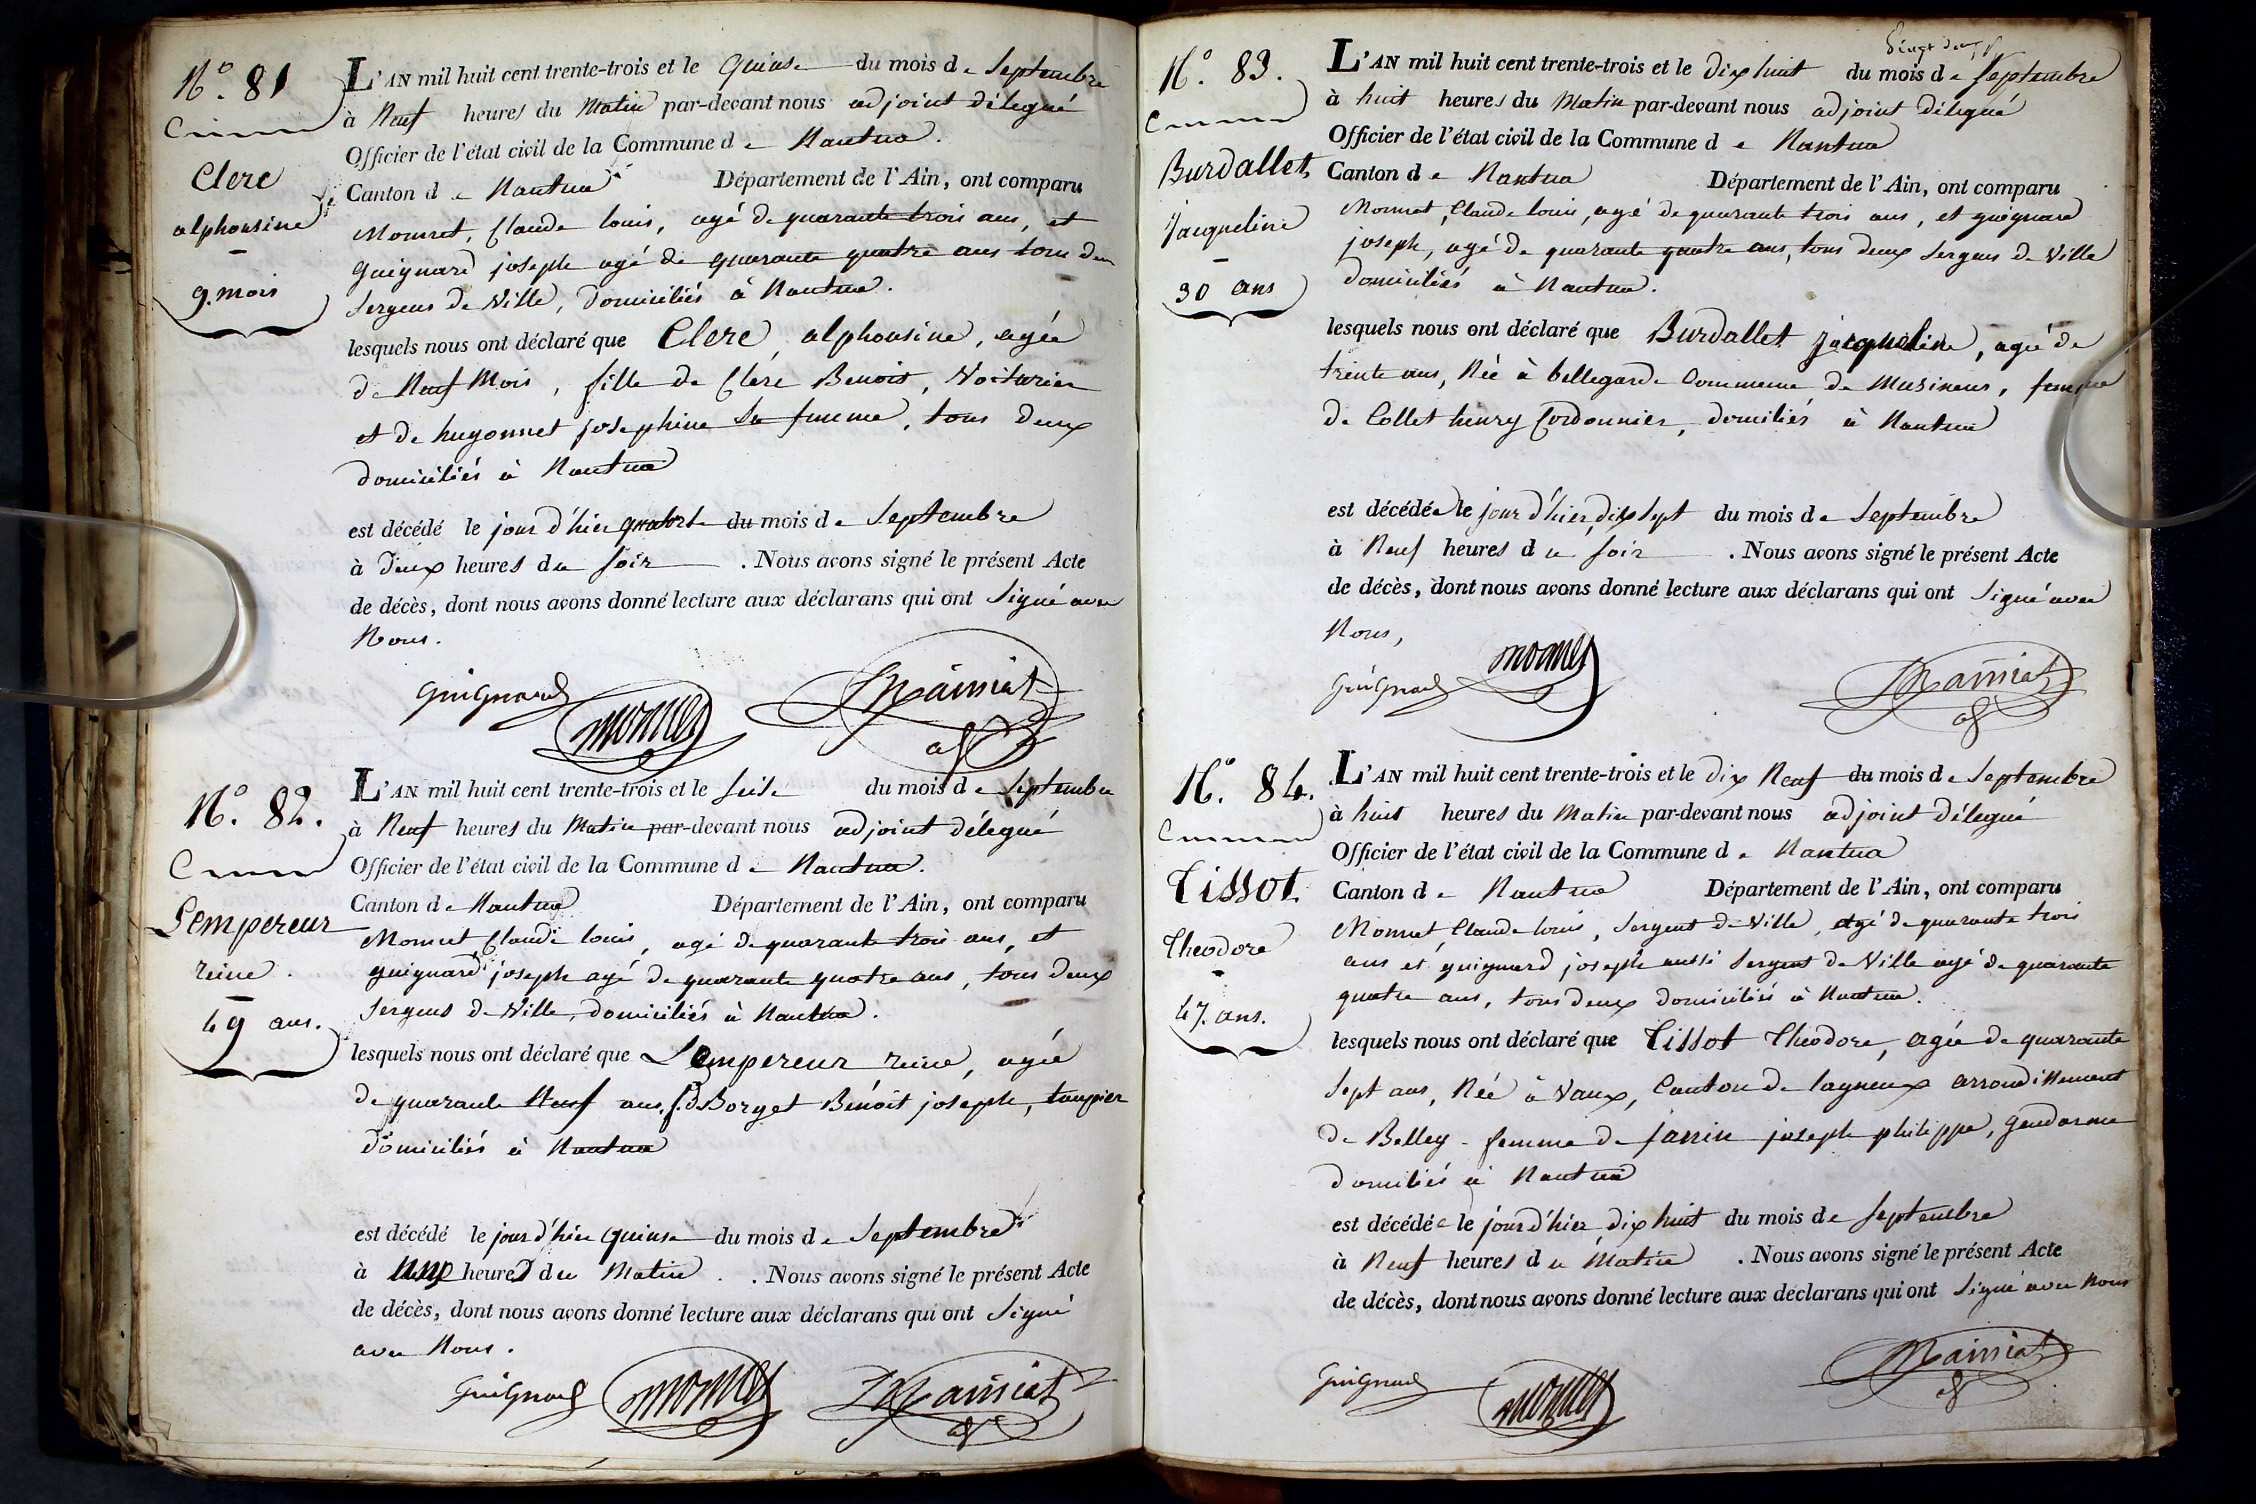 N.° 81
Clerc
alphonsine
9. mois
L'AN mil huit cent trente-trois et le Quinse du mois de Septembre
à Neuf heures du Matin par-devant nous adjoint délegué
Officier de l'état civil de la Commune de Nantua.
Canton de Nantua Département de l'Ain, ont comparu
Monnet, Claude louis, agé de quarante trois ans, et
Guignard joseph agé de quarante quatre ans tous deux
Sergens de Ville, domiciliés à Nantua.
lesquels nous ont déclaré que Clerc, alphonsine, agée
de Neuf Mois, fille de Clerc Benoit, Voiturier
et de hugonnet josephine Sa femme, tous deux
domiciliés à Nantua
est décédé le jour d'hier quatorze du mois de Septembre
à Deux heures du Soir. Nous avons signé le présent Acte
de décès, dont nous avons donné lecture aux déclarans qui ont Signé avec
Nous.
Guignard Monnet Mainiat
N.° 82.
Lempereur
reine.
49 ans.
L'AN mil huit cent trente-trois et le Seise du mois de Septembre
à Neuf heures du Matin par-devant nous adjoint délegué
Officier de l'état civil de la Commune de Nantua.
Canton de Nantua Département de l'Ain, ont comparu
Monnet Claude louis, agé de quarante trois ans, et
guignard joseph agé de quarante quatre ans, tous deux
Sergens de Ville, domiciliés à Nantua.
lesquels nous ont déclaré que Lempereur reine, agée
de quarante Neuf ans, f. d Borget Bénoit joseph, taupier
domiciliés à Nantua
est décédé le jour d'hier Quinse du mois de Septembre
à heures du Matin. Nous avons signé le présent Acte
de décès, dont nous avons donné lecture aux déclarans qui ont Signé
avec Nous.
Guignard Monnet Mainiat
N.° 83.
Burdallet
Jacqueline
30 ans
L'AN mil huit cent trente-trois et le Dix huit du mois de Septembre
à huit heures du Matin par-devant nous adjoint délegué
Officier de l'état civil de la Commune de Nantua
Canton de Nantua Département de l'Ain, ont comparu
Monnet, Claude louis, agé de quarante trois ans, et guignard
joseph, agé de quarante quatre ans, tous deux Sergens de Ville
domiciliés à Nantua.
lesquels nous ont déclaré que Burdallet jacqueline, agée de
trente ans, Née à bellegarde Commune de Musinens, femme
de Collet henry Cordonnier, domiliés à Nantua
est décédée le jour d'hier, dix sept du mois de Septembre
à Neuf heures du Soir. Nous avons signé le présent Acte
de décès, dont nous avons donné lecture aux déclarans qui ont Signé avec
Nous,
Guignard Monnet Mainiat
N.° 84.
Tissot
Theodore
47. ans.
L'AN mil huit cent trente-trois et le Dix Neuf du mois de Septembre
à huit heures du Matin par-devant nous adjoint délegué
Officier de l'état civil de la Commune de Nantua
Canton de Nantua Département de l'Ain, ont comparu
Monnet, Claude louis, Sergent de Ville, agé de quarante trois
ans et guignard joseph aussi Sergent de Ville agé de quarante
quatre ans, tous deux domiciliés à Nantua.
lesquels nous ont déclaré que Tissot Theodore, agée de quarante
Sept ans, Née à Vaux, Canton de lagneux arrondissement
de Belley - femme de Janin joseph philippe, gendarme
domiliés à Nantua
est décédée le jour d'hier, dix huit du mois de Septembre
à Neuf heures du Matin. Nous avons signé le présent Acte
de décès, dont nous avons donné lecture aux déclarans qui ont Signé avec Nous
Guignard Monnet Mainiat